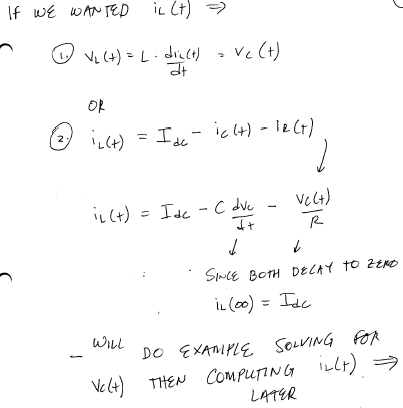 IF WE WANTED iL(t) ⇒
1. VL(t) = L · diL(t)/dt = VC(t)
OR
2. iL(t) = Idc - iC(t) - iR(t)
iL(t) = Idc - C dVC/dt - VC(t)/R
SINCE BOTH DECAY TO ZERO
iL(∞) = Idc
- WILL DO EXAMPLE SOLVING FOR
VC(t) THEN COMPUTING iL(t) ⇒
LATER